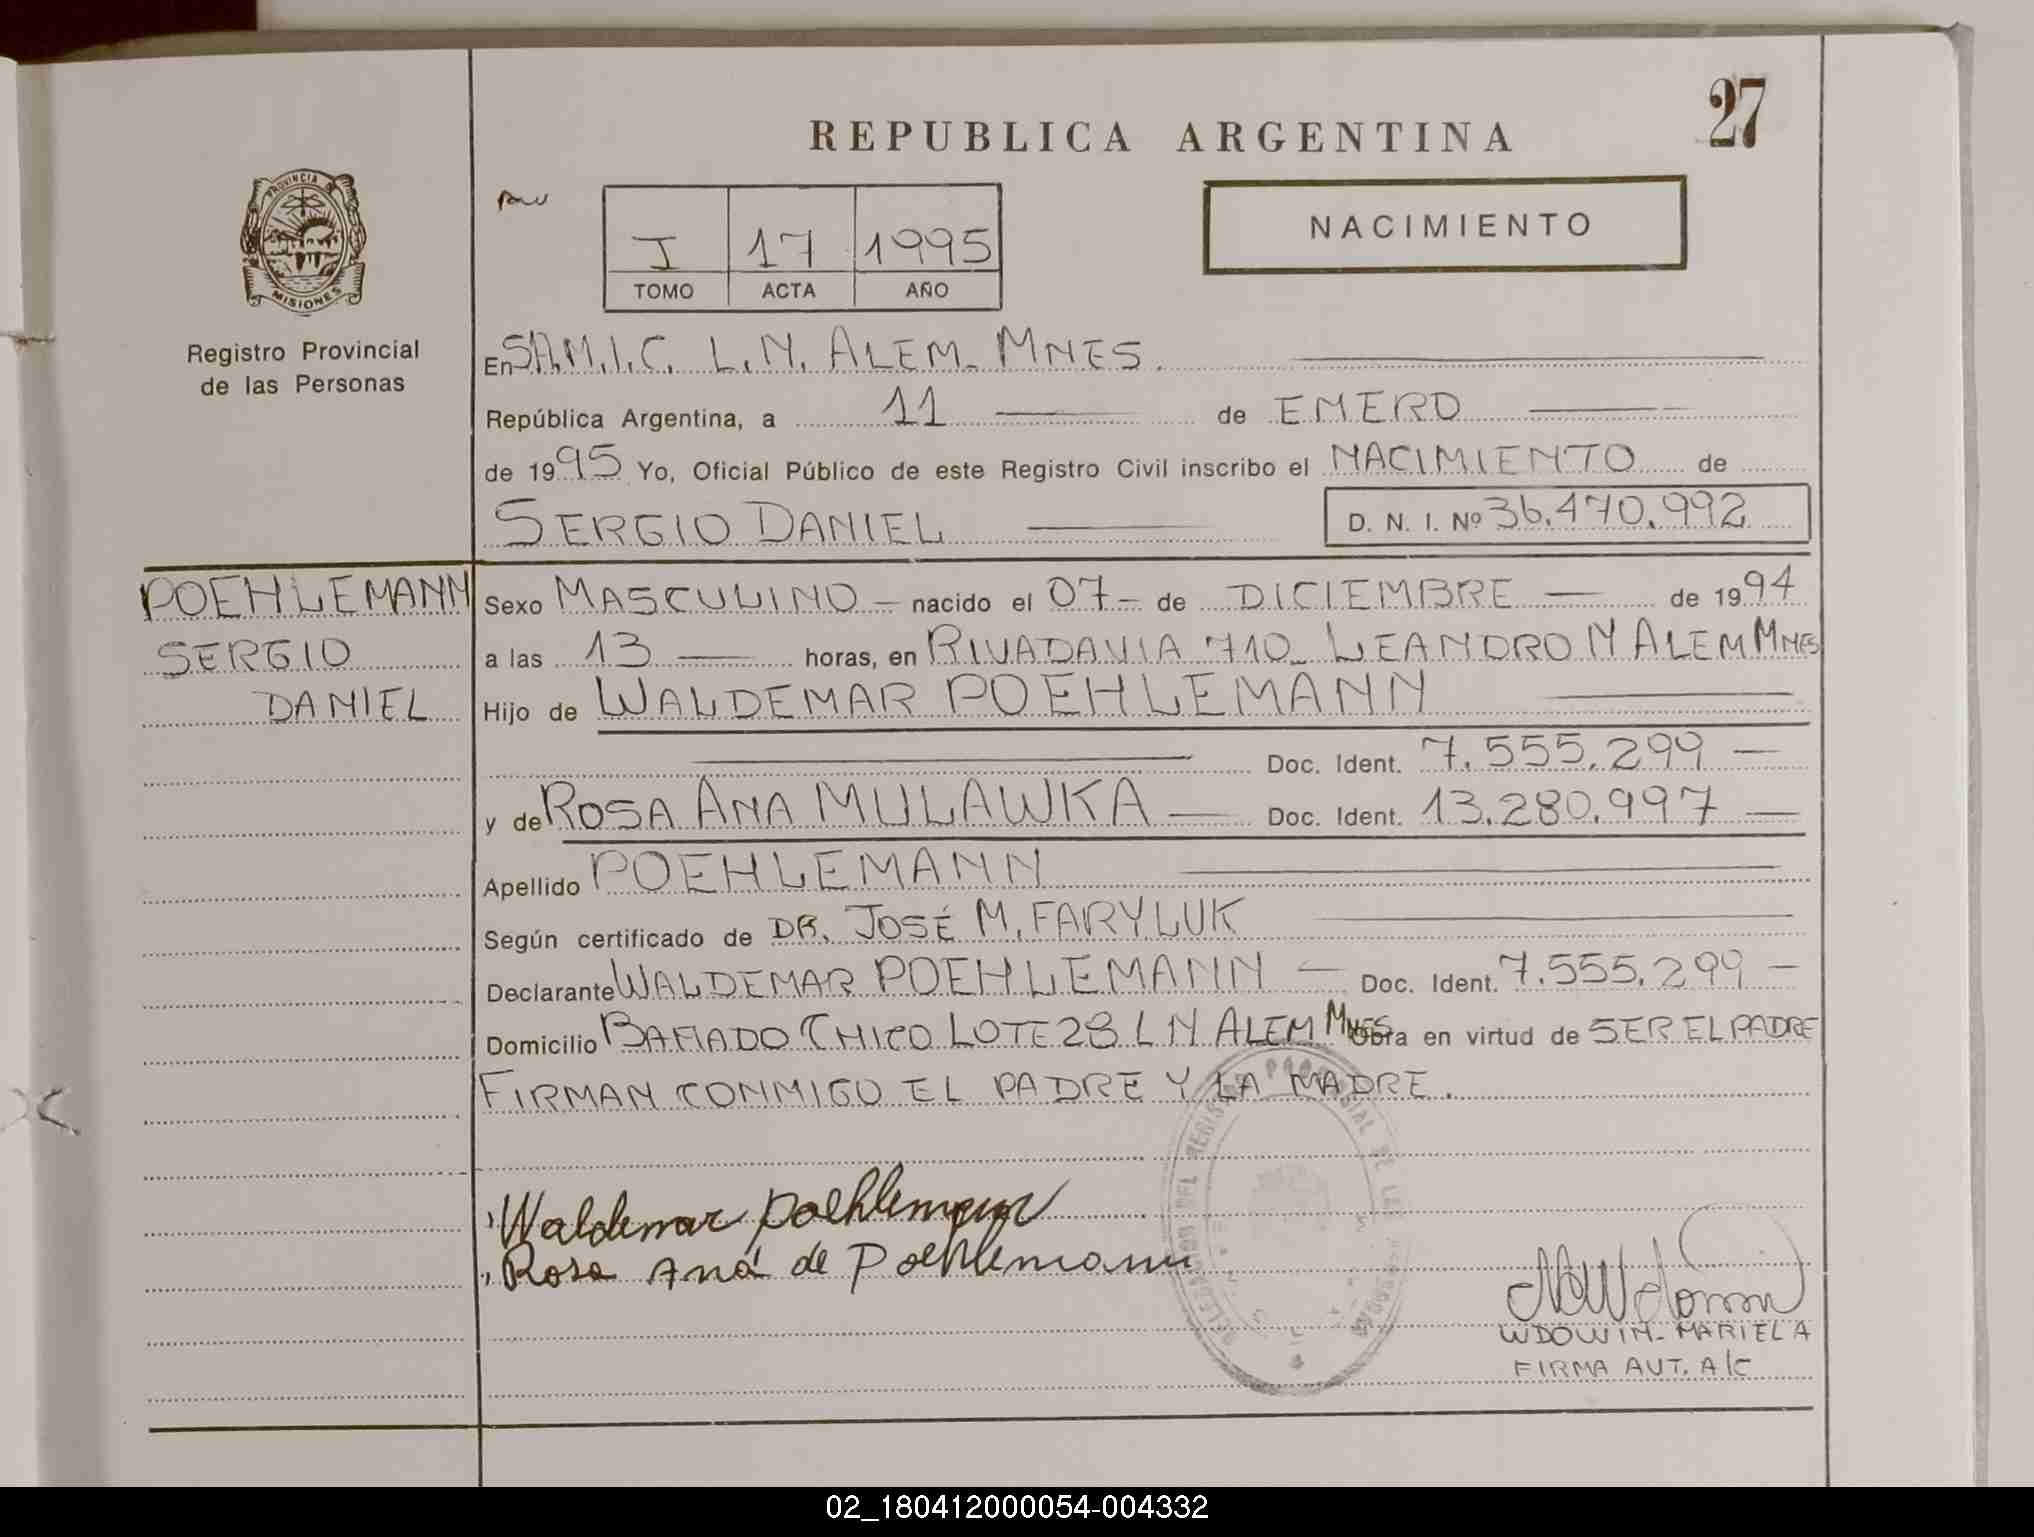 27
REPUBLICA ARGENTINA
NACIMIENTO
I 17 1995
TOMO ACTA AÑO
PROVINCIA DE
MISIONES
Registro Provincial
de las Personas
En S.A.M.I.C. L.N. ALEM - MNES.
República Argentina, a 11 de ENERO
de 1995 Yo, Oficial Público de este Registro Civil inscribo el NACIMIENTO de
SERGIO DANIEL D. N. I. Nº 36.470.992
POEHLEMANN
SERGIO
DANIEL
Sexo MASCULINO - nacido el 07 - de DICIEMBRE — de 1994
a las 13 — horas, en RIVADAVIA 710 - LEANDRO N ALEM MNES
Hijo de WALDEMAR POEHLEMANN
Doc. Ident. 7.555.299 —
y de ROSA ANA MULAWKA — Doc. Ident. 13.280.997 —
Apellido POEHLEMANN
Según certificado de DR. JOSÉ M. FARYLUK
Declarante WALDEMAR POEHLEMANN — Doc. Ident. 7.555.299 —
Domicilio BAÑADO CHICO LOTE 28 L N ALEM MNES Obra en virtud de SER EL PADRE
FIRMAN CONMIGO EL PADRE Y LA MADRE.
Waldemar Poehlemann
Rosa Ana de Poehlemann
WDOWIN - MARIELA
FIRMA AUT. A/C
02_180412000054-004332